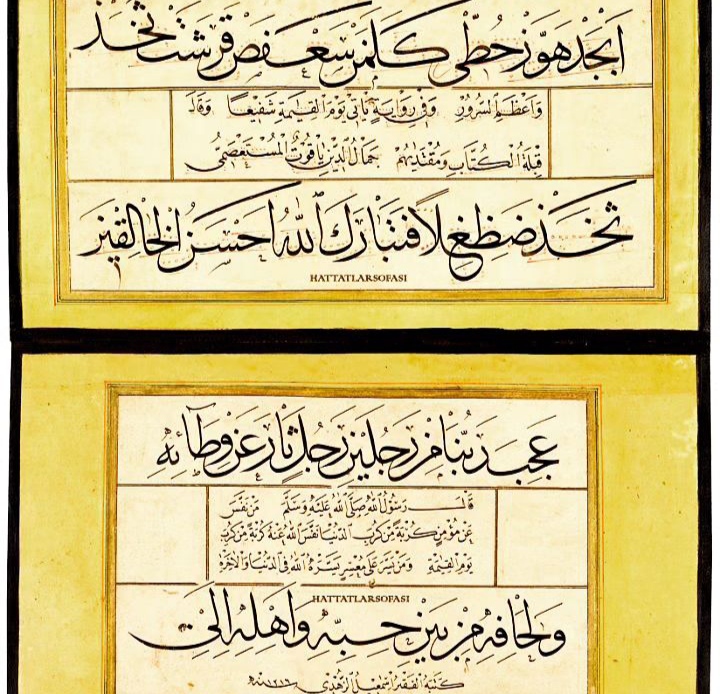 ابجد هوز حطي كلمن سعفص قرشت ثخذ
واعظم السرور وفي رواية ياتي يوم القيمة شفيعا وقال
قبلة الكتاب ومقتديهم جمال الدين ياقوت المستعصمي
ثخذ ضظغلا فتبارك الله احسن الخالقين
HATTATLARSOFASI
عجب ربنا من رجلين رجل ثار عن وطائه
قال رسول الله صلى الله عليه وسلم من نفس
عن مؤمن كربة من كرب الدنيا نفس الله عنه كربة من كرب
يوم القيمة ومن يسر على معسر يسره الله في الدنيا والاخرة
HATTATLARSOFASI
ولحافه من بين حبه واهله الى
كتبه الفقير اسمعيل الزهدي سنة ١٢١٦